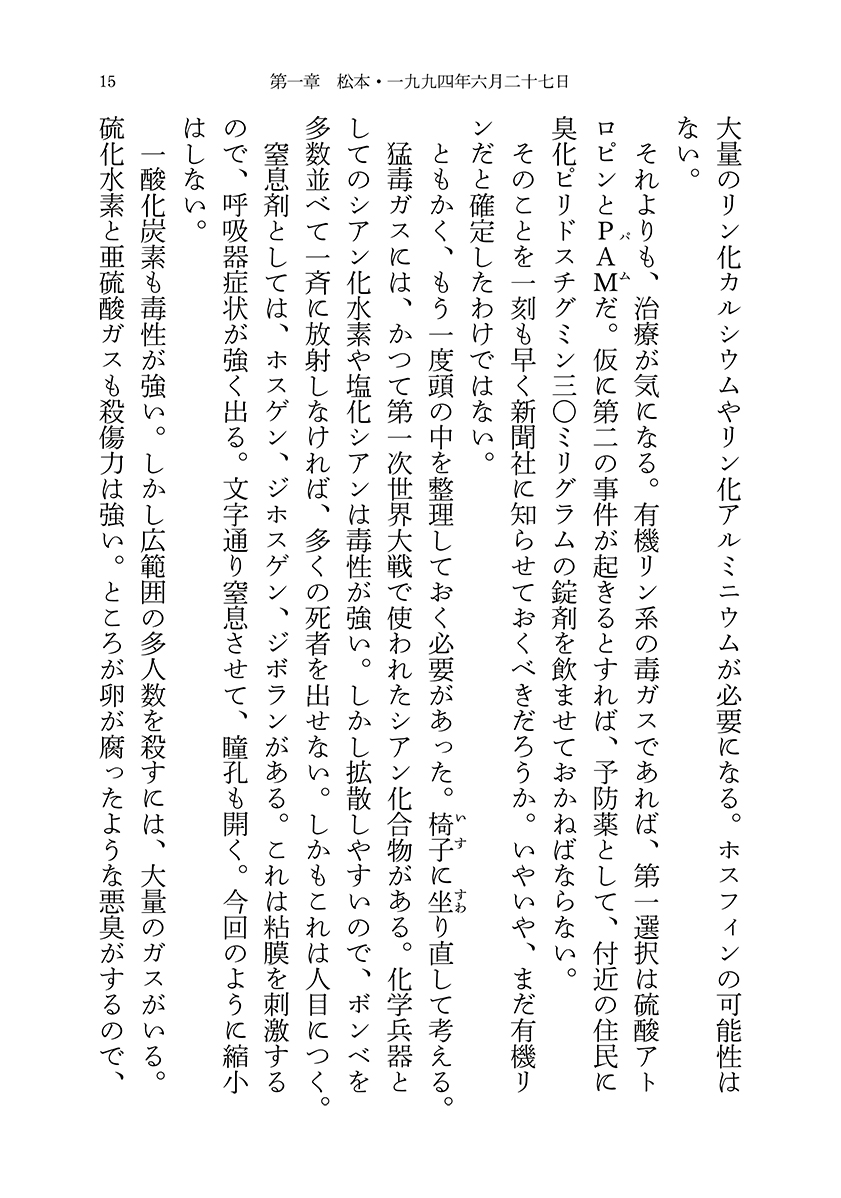 15
第一章　松本・一九九四年六月二十七日
大量のリン化カルシウムやリン化アルミニウムが必要になる。ホスフィンの可能性は
ない。
　それよりも、治療が気になる。有機リン系の毒ガスであれば、第一選択は硫酸アト
ロピンとPAMだ。仮に第二の事件が起きるとすれば、予防薬として、付近の住民に
臭化ピリドスチグミン三〇ミリグラムの錠剤を飲ませておかねばならない。
　そのことを一刻も早く新聞社に知らせておくべきだろうか。いやいや、まだ有機リ
ンだと確定したわけではない。
　ともかく、もう一度頭の中を整理しておく必要があった。椅子に坐り直して考える。
　猛毒ガスには、かつて第一次世界大戦で使われたシアン化合物がある。化学兵器と
してのシアン化水素や塩化シアンは毒性が強い。しかし拡散しやすいので、ボンベを
多数並べて一斉に放射しなければ、多くの死者を出せない。しかもこれは人目につく。
　窒息剤としては、ホスゲン、ジホスゲン、ジボランがある。これは粘膜を刺激する
ので、呼吸器症状が強く出る。文字通り窒息させて、瞳孔も開く。今回のように縮小
はしない。
　一酸化炭素も毒性が強い。しかし広範囲の多人数を殺すには、大量のガスがいる。
硫化水素と亜硫酸ガスも殺傷力は強い。ところが卵が腐ったような悪臭がするので、